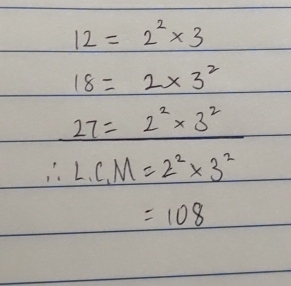 12 = 2² × 3
18 = 2 × 3²
27 = 2² × 3²
∴ L.C.M = 2² × 3²
= 108